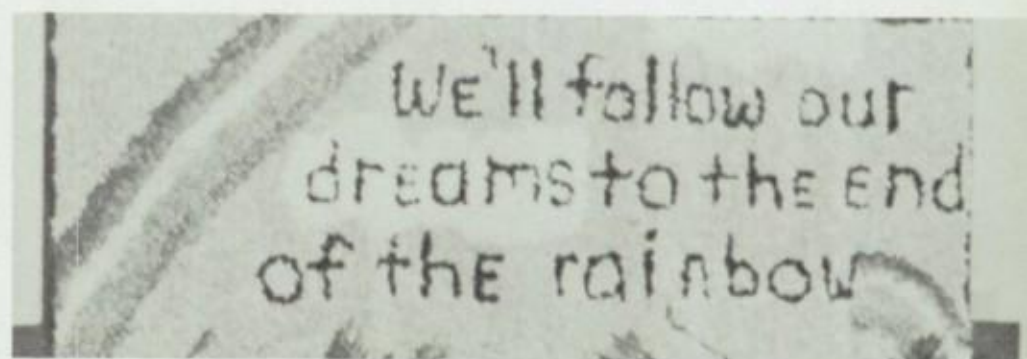 We'll follow our
dreams to the end
of the rainbow